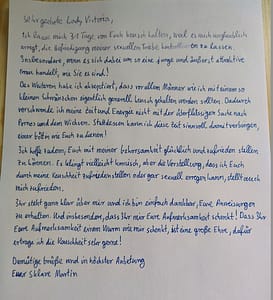 Sehr geehrte Lady Victoria,
Ich lasse mich 31 Tage von Euch keusch halten, weil es mich unglaublich
erregt, die Befriedigung meiner sexuellen Triebe kontrollieren zu lassen.
Insbesondere, wenn es sich dabei um so eine junge und äußerst attraktive
Frau handelt, wie Sie es sind!
Des Weiteren habe ich akzeptiert, dass vor allem Männer wie ich mit einem so
kleinen Schwänzchen eigentlich generell keusch gehalten werden sollten. Dadurch
verschwende ich meine Zeit und Energie nicht mit der überflüssigen Suche nach
Pornos und dem Wichsen. Stattdessen kann ich diese Zeit sinnvoll damit verbringen,
einer Göttin wie Euch zu dienen!
Ich hoffe zudem, Euch mit meiner Gehorsamkeit glücklich und zufrieden stellen
zu können. Es klingt vielleicht komisch, aber die Vorstellung, dass ich Euch
durch meine Keuschheit zufriedenstellen oder gar sexuell erregen kann, stellt auch
mich zufrieden.
Ihr steht ganz klar über mir und ich bin einfach dankbar, Eure Anweisungen
zu erhalten. Und insbesondere, dass Ihr mir Eure Aufmerksamkeit schenkt! Dass Ihr
Eure Aufmerksamkeit einem Wurm wie mir schenkt, ist eine große Ehre, dafür
ertrage ich die Keuschheit sehr gerne!
Demütige Grüße und in höchster Anbetung
Euer Sklave Martin